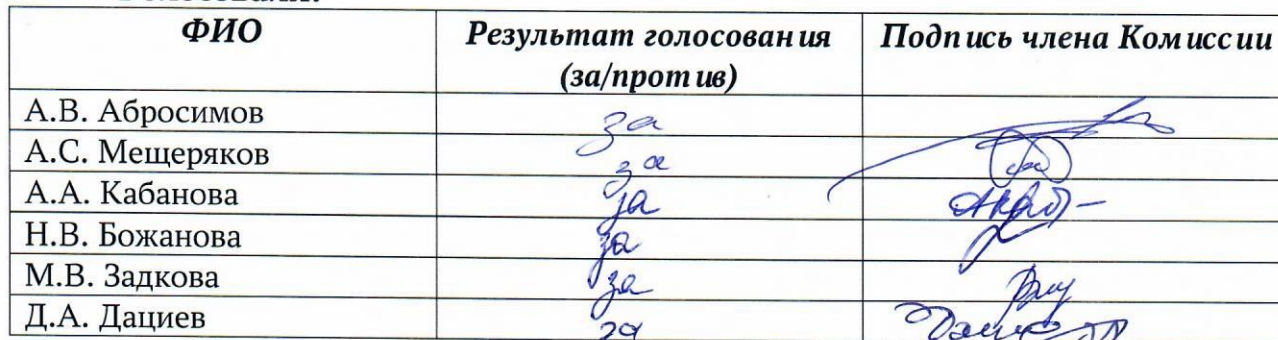 ФИО Результат голосования (за/против) Подпись члена Комиссии
А.В. Абросимов за
А.С. Мещеряков за
А.А. Кабанова за
Н.В. Божанова за
М.В. Задкова за
Д.А. Дациев за